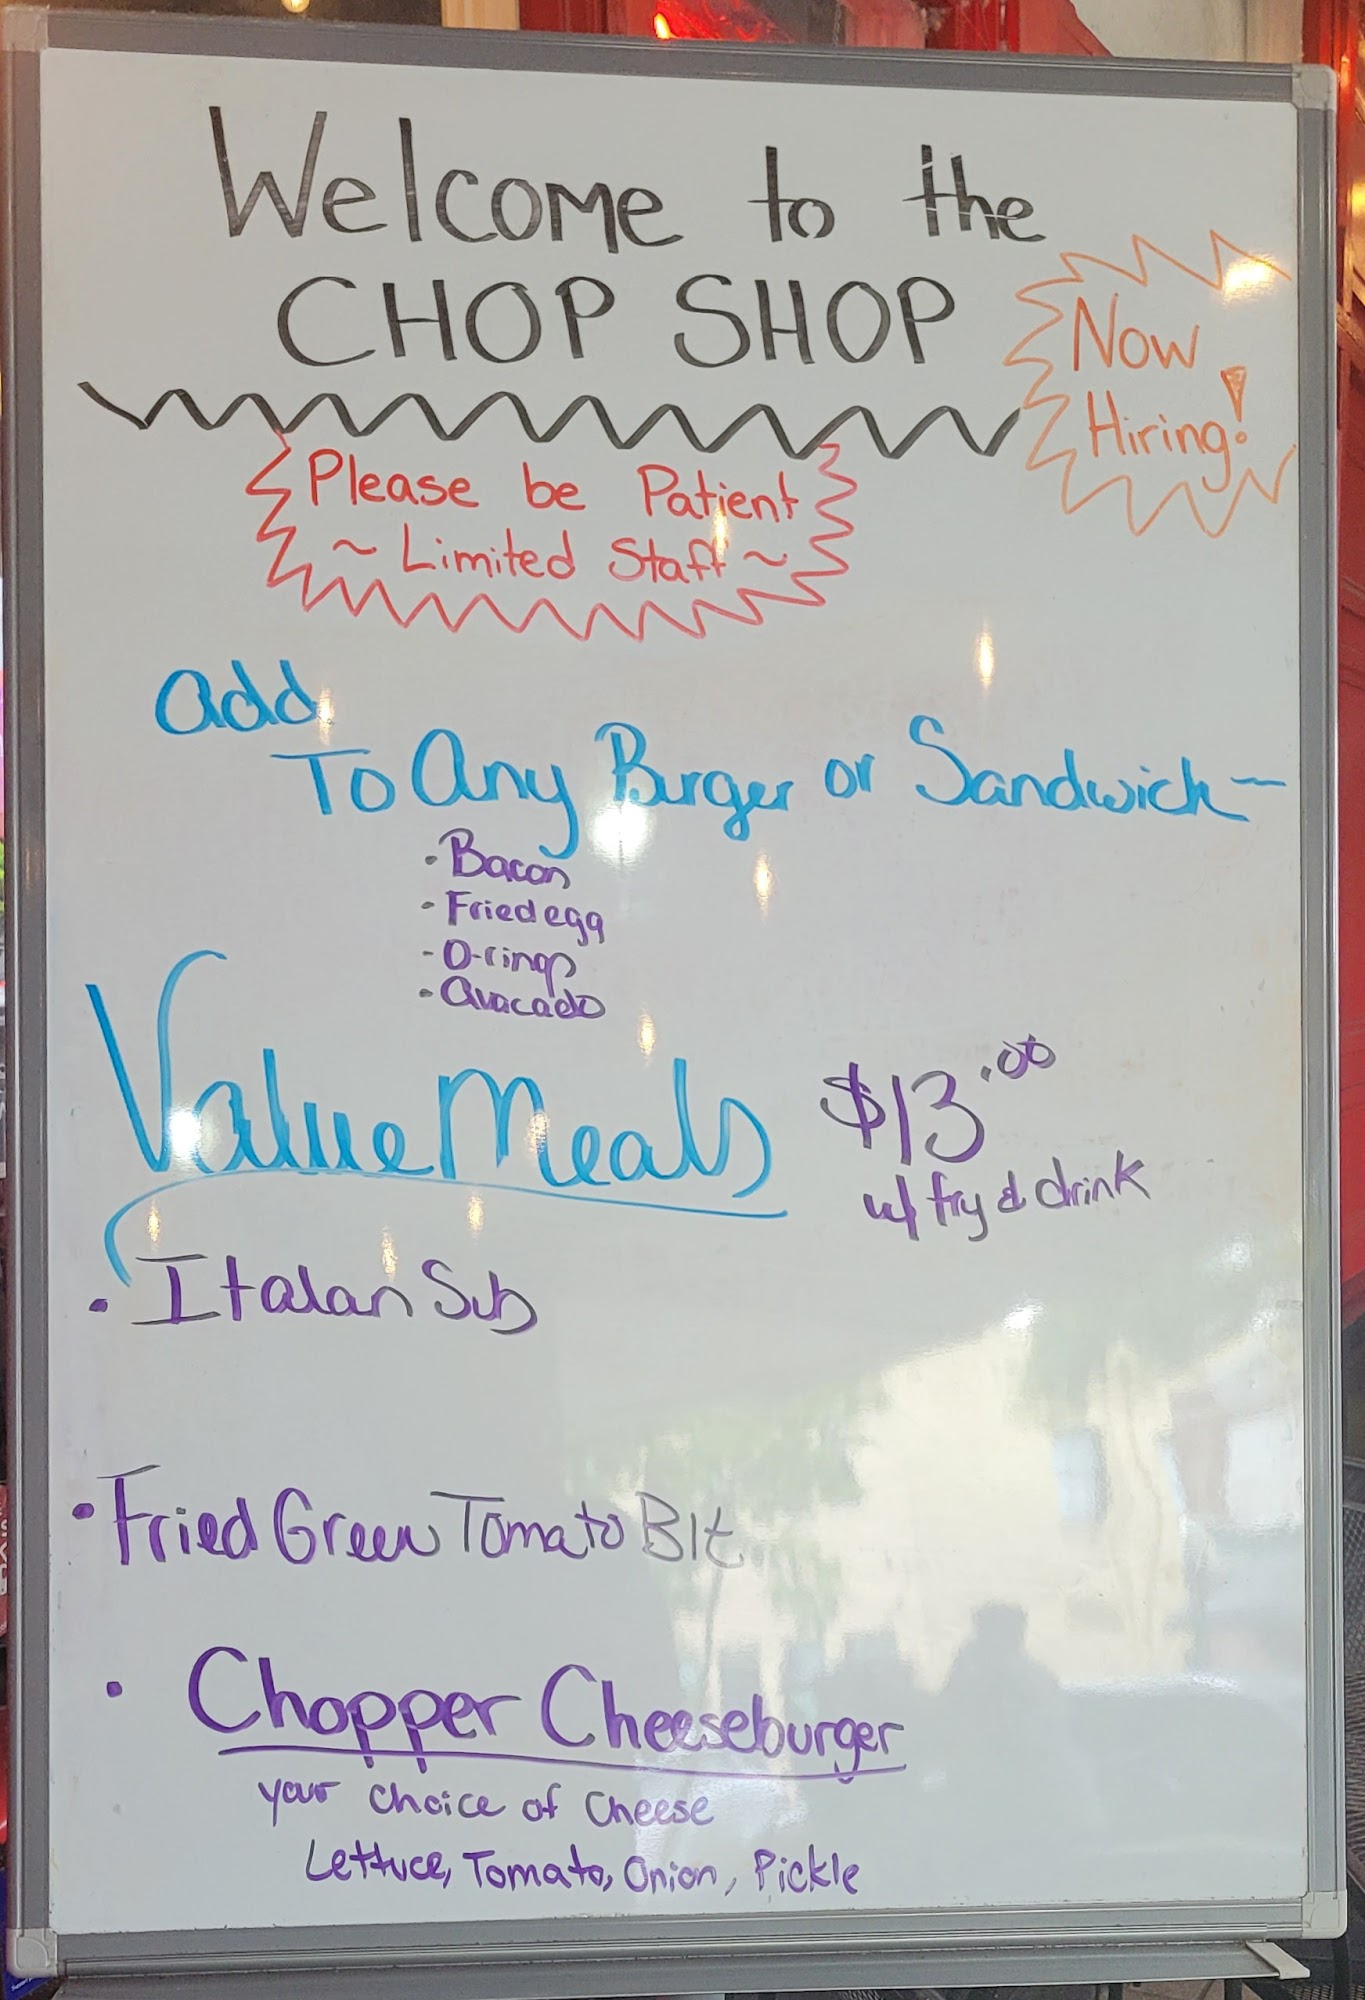 Welcome to the
CHOP SHOP
Now
Hiring!
Please be Patient
~ Limited Staff ~
add
To Any Burger or Sandwich —
· Bacon
· Fried egg
- O-rings
· Avacado
Value Meals
$13.00
w/ fry & drink
· Italan Sub
· Fried Green Tomato Blt
· Chopper Cheeseburger
your choice of Cheese
Lettuce, Tomato, Onion, Pickle